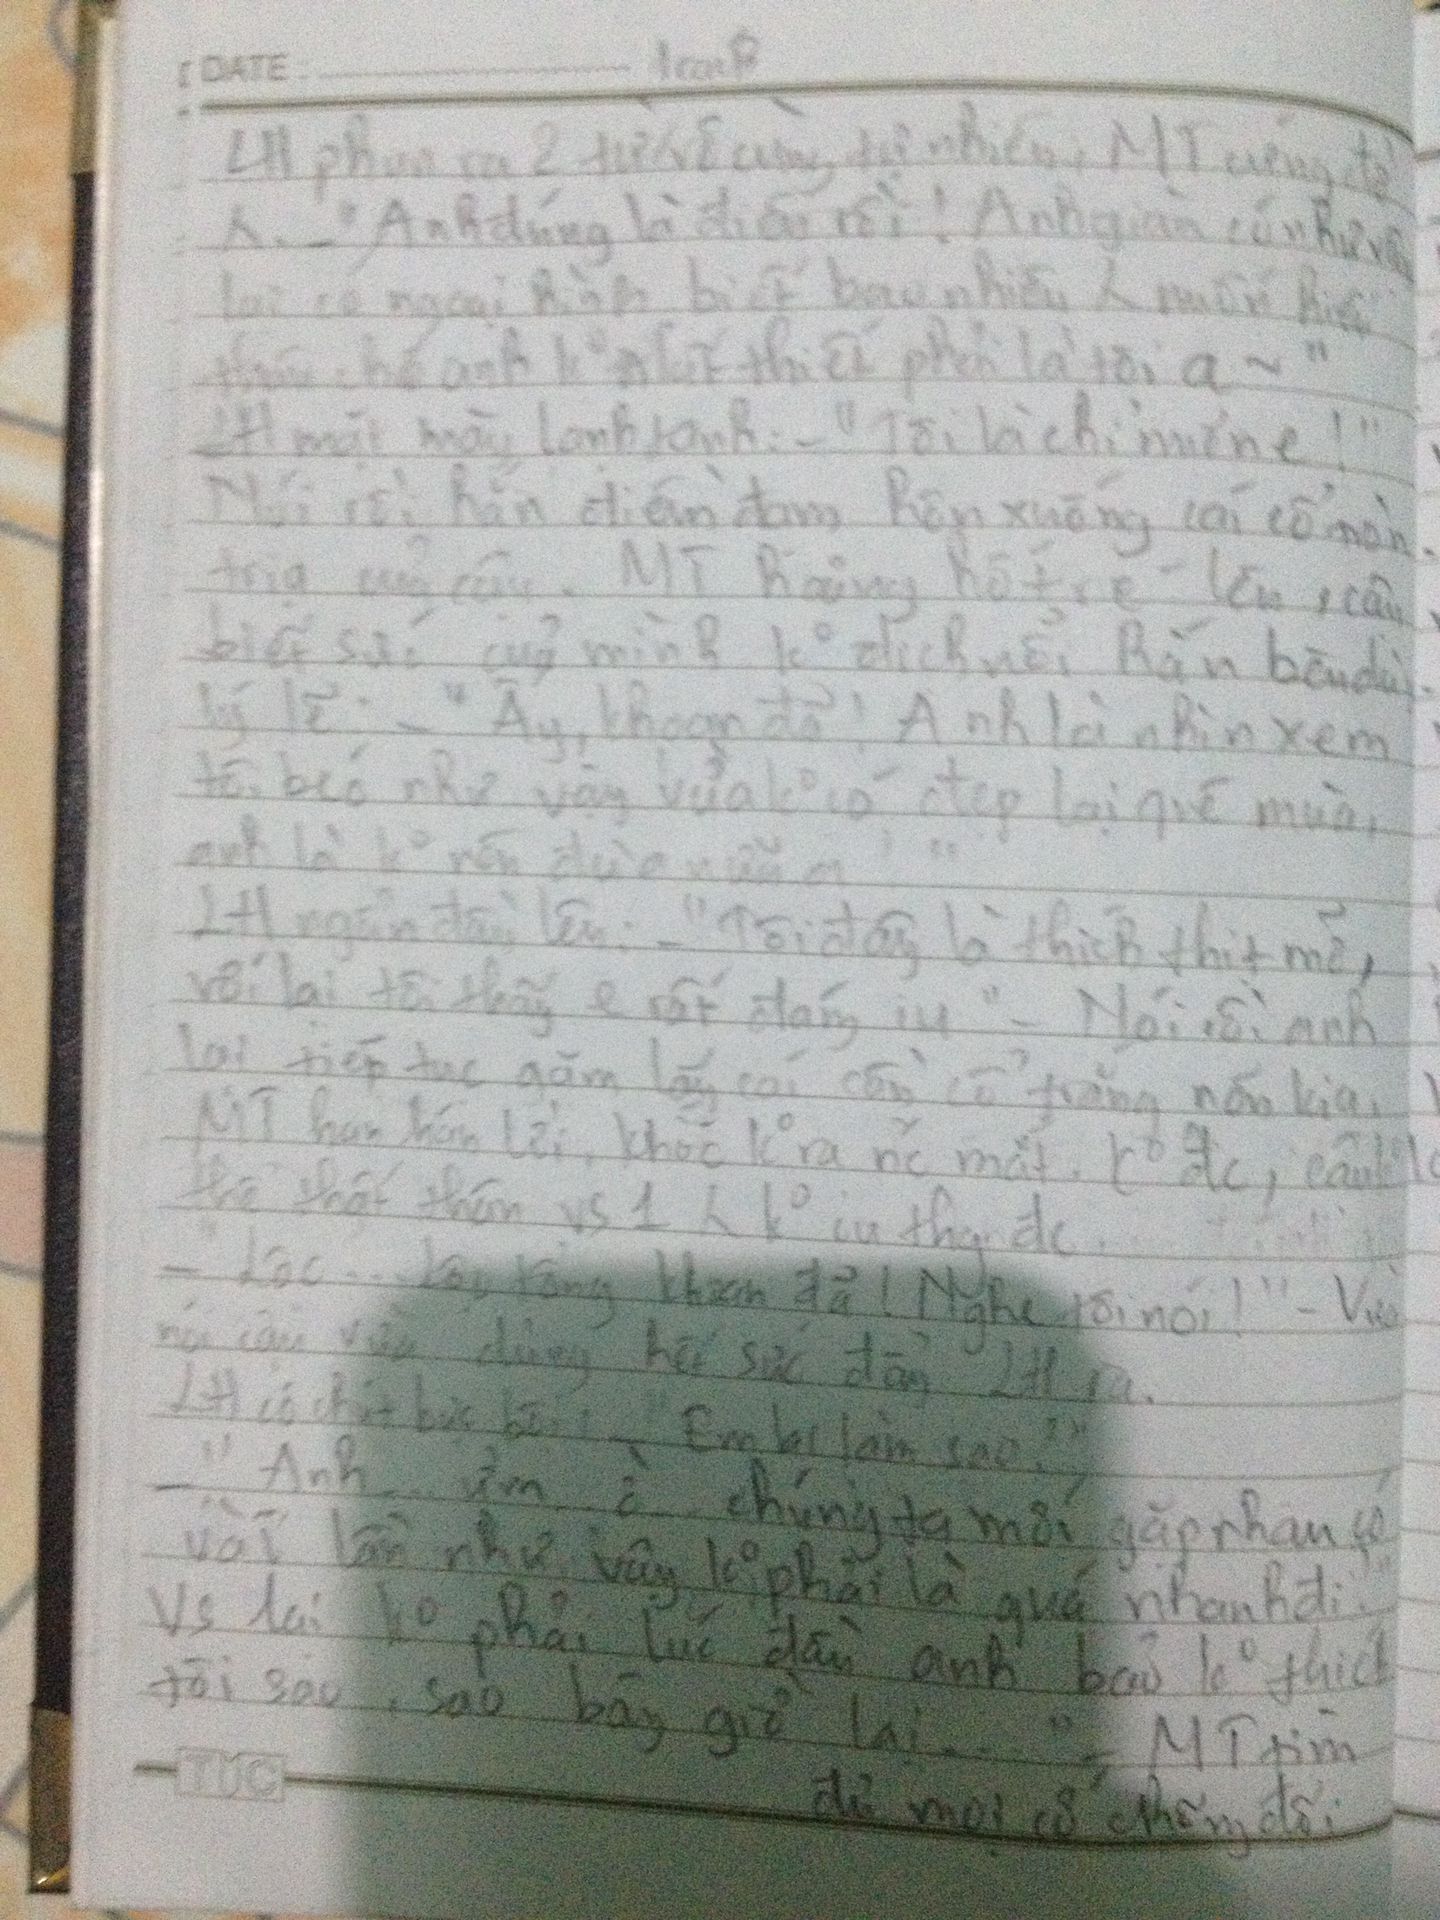 DATE
LH phun ra 2 từ vô cùng tự nhiên, MT cứng đờ
λ. - "Anh đúng là điên rồi! Anh giàu có như vậy
lại có ngoại hình biết bao nhiêu λ muốn hiến
thân cho anh k° nhất thiết phải là tôi a ~"
LH mặt mày lạnh tanh: - "Tôi là chỉ muốn e!"
Nói rồi hắn điềm đạm hôn xuống cái cổ nõn
trìa của cậu. MT hoảng hốt, e lên, cậu
biết sức của mình k° địch nổi hắn bèn dùi
lý lẽ: - "Ây, khoan đã! Anh là nhìn xem
tôi béo như vậy vừa k° có đẹp lại quê mùa,
anh là k° nên đùa nữa a!"
LH ngẩn đầu lên: - "Tôi đây là thích thịt mỡ,
với lại tôi thấy e rất đáng iu" - Nói rồi anh
lại tiếp tục gặm lấy cái cần cổ trắng nõn kia.
MT han hán lời, khóc k° ra nc mắt. k° đc, cậu k°
thể thất thân vs 1 λ k° iu thg đc
- "Lộc... Lộc tổng khoan đã! Nghe tôi nói!" - Vừa
nói cậu vừa dùng hết sức đẩy LH ra.
LH có chút bực bội: - "Em bị làm sao?"
- "Anh.. ừm ờ chúng ta mới gặp nhau có
vài lần như vậy k° phải là quá nhanh đi."
Vs lại k° phải lúc đầu anh bảo k° thích
tôi sao, sao bây giờ lại...." - MT tìm
đủ mọi cớ chống đối
TUC